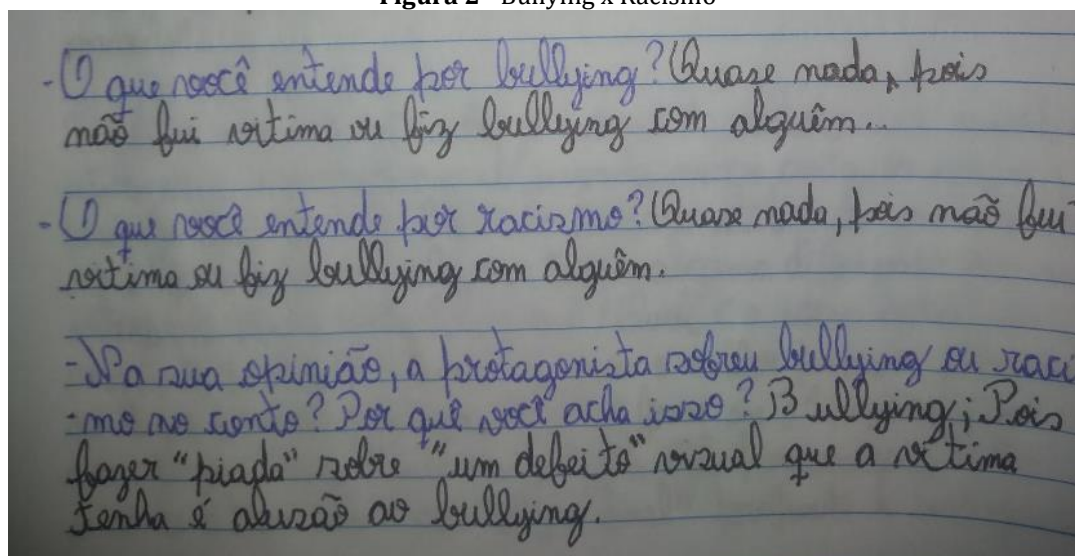 Figura 2 - Bullying x Racismo
- O que você entende por bullying? Quase nada, pois
não fui vítima ou fiz bullying com alguêm...
- O que você entende por racismo? Quase nada, pois não fui
vítima ou fiz bullying com alguêm.
- Na sua opinião, a protagonista sofreu bullying ou raci
-mo no conto? Por quê você acha isso? Bullying; Pois
fazer "piada" sobre "um defeito" visual que a vítima
tenha é alusão ao bullying.